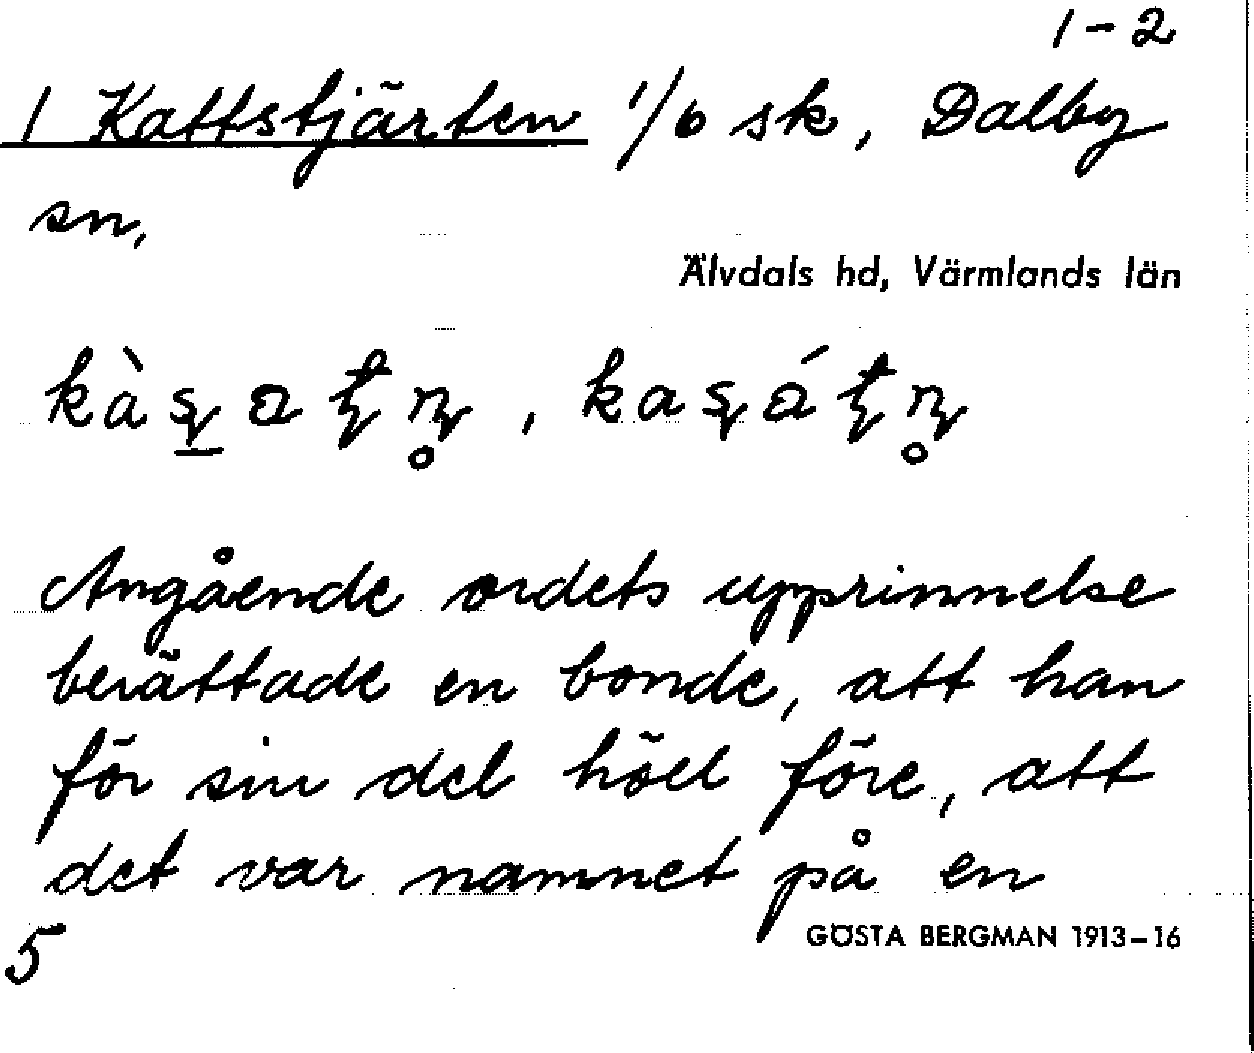 1-2
1 Kattstjärten 1/6 sk, Dalby
sn,
Älvdals hd, Värmlands län
Angående ordets upprinnelse
berättade en bonde, att han
för sin del höll före, att
det var namnet på en
GÖSTA BERGMAN 1913-16
5